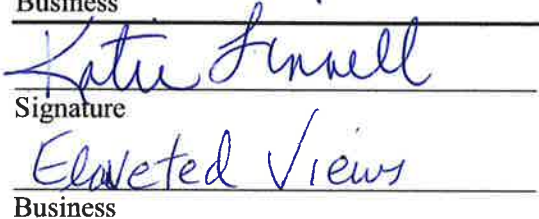 Business
Katie Linnell
Signature
Elaveted Views
Business